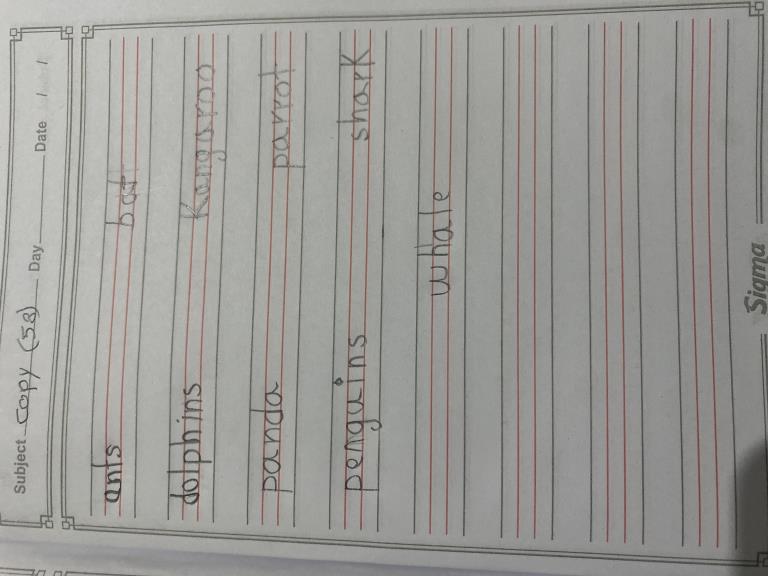 Subject Copy (58) Day Date / /
ants bat
dolphins Kangaroo
panda parrot
penguins shark
whale
Sigma